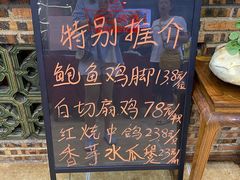 特别推介
鲍鱼鸡脚138元/
白切扇鸡78元/
红烧中鸽238/
香芋水瓜煲238/